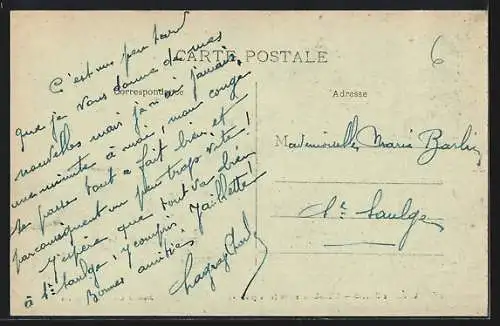 CARTE POSTALE
Correspondance
Adresse
6
C'est un peu tard
que je vous donne de mes
nouvelles mais je n'ai jamais
une minute à moi, mon congé
se passe tout à fait bien et
par conséquent un peu trop vite!
J'espère que tout va bien
à St Saulge, y compris Taillette!
Bonnes amitiés
Mademoiselle Marie Barlin
St Saulge